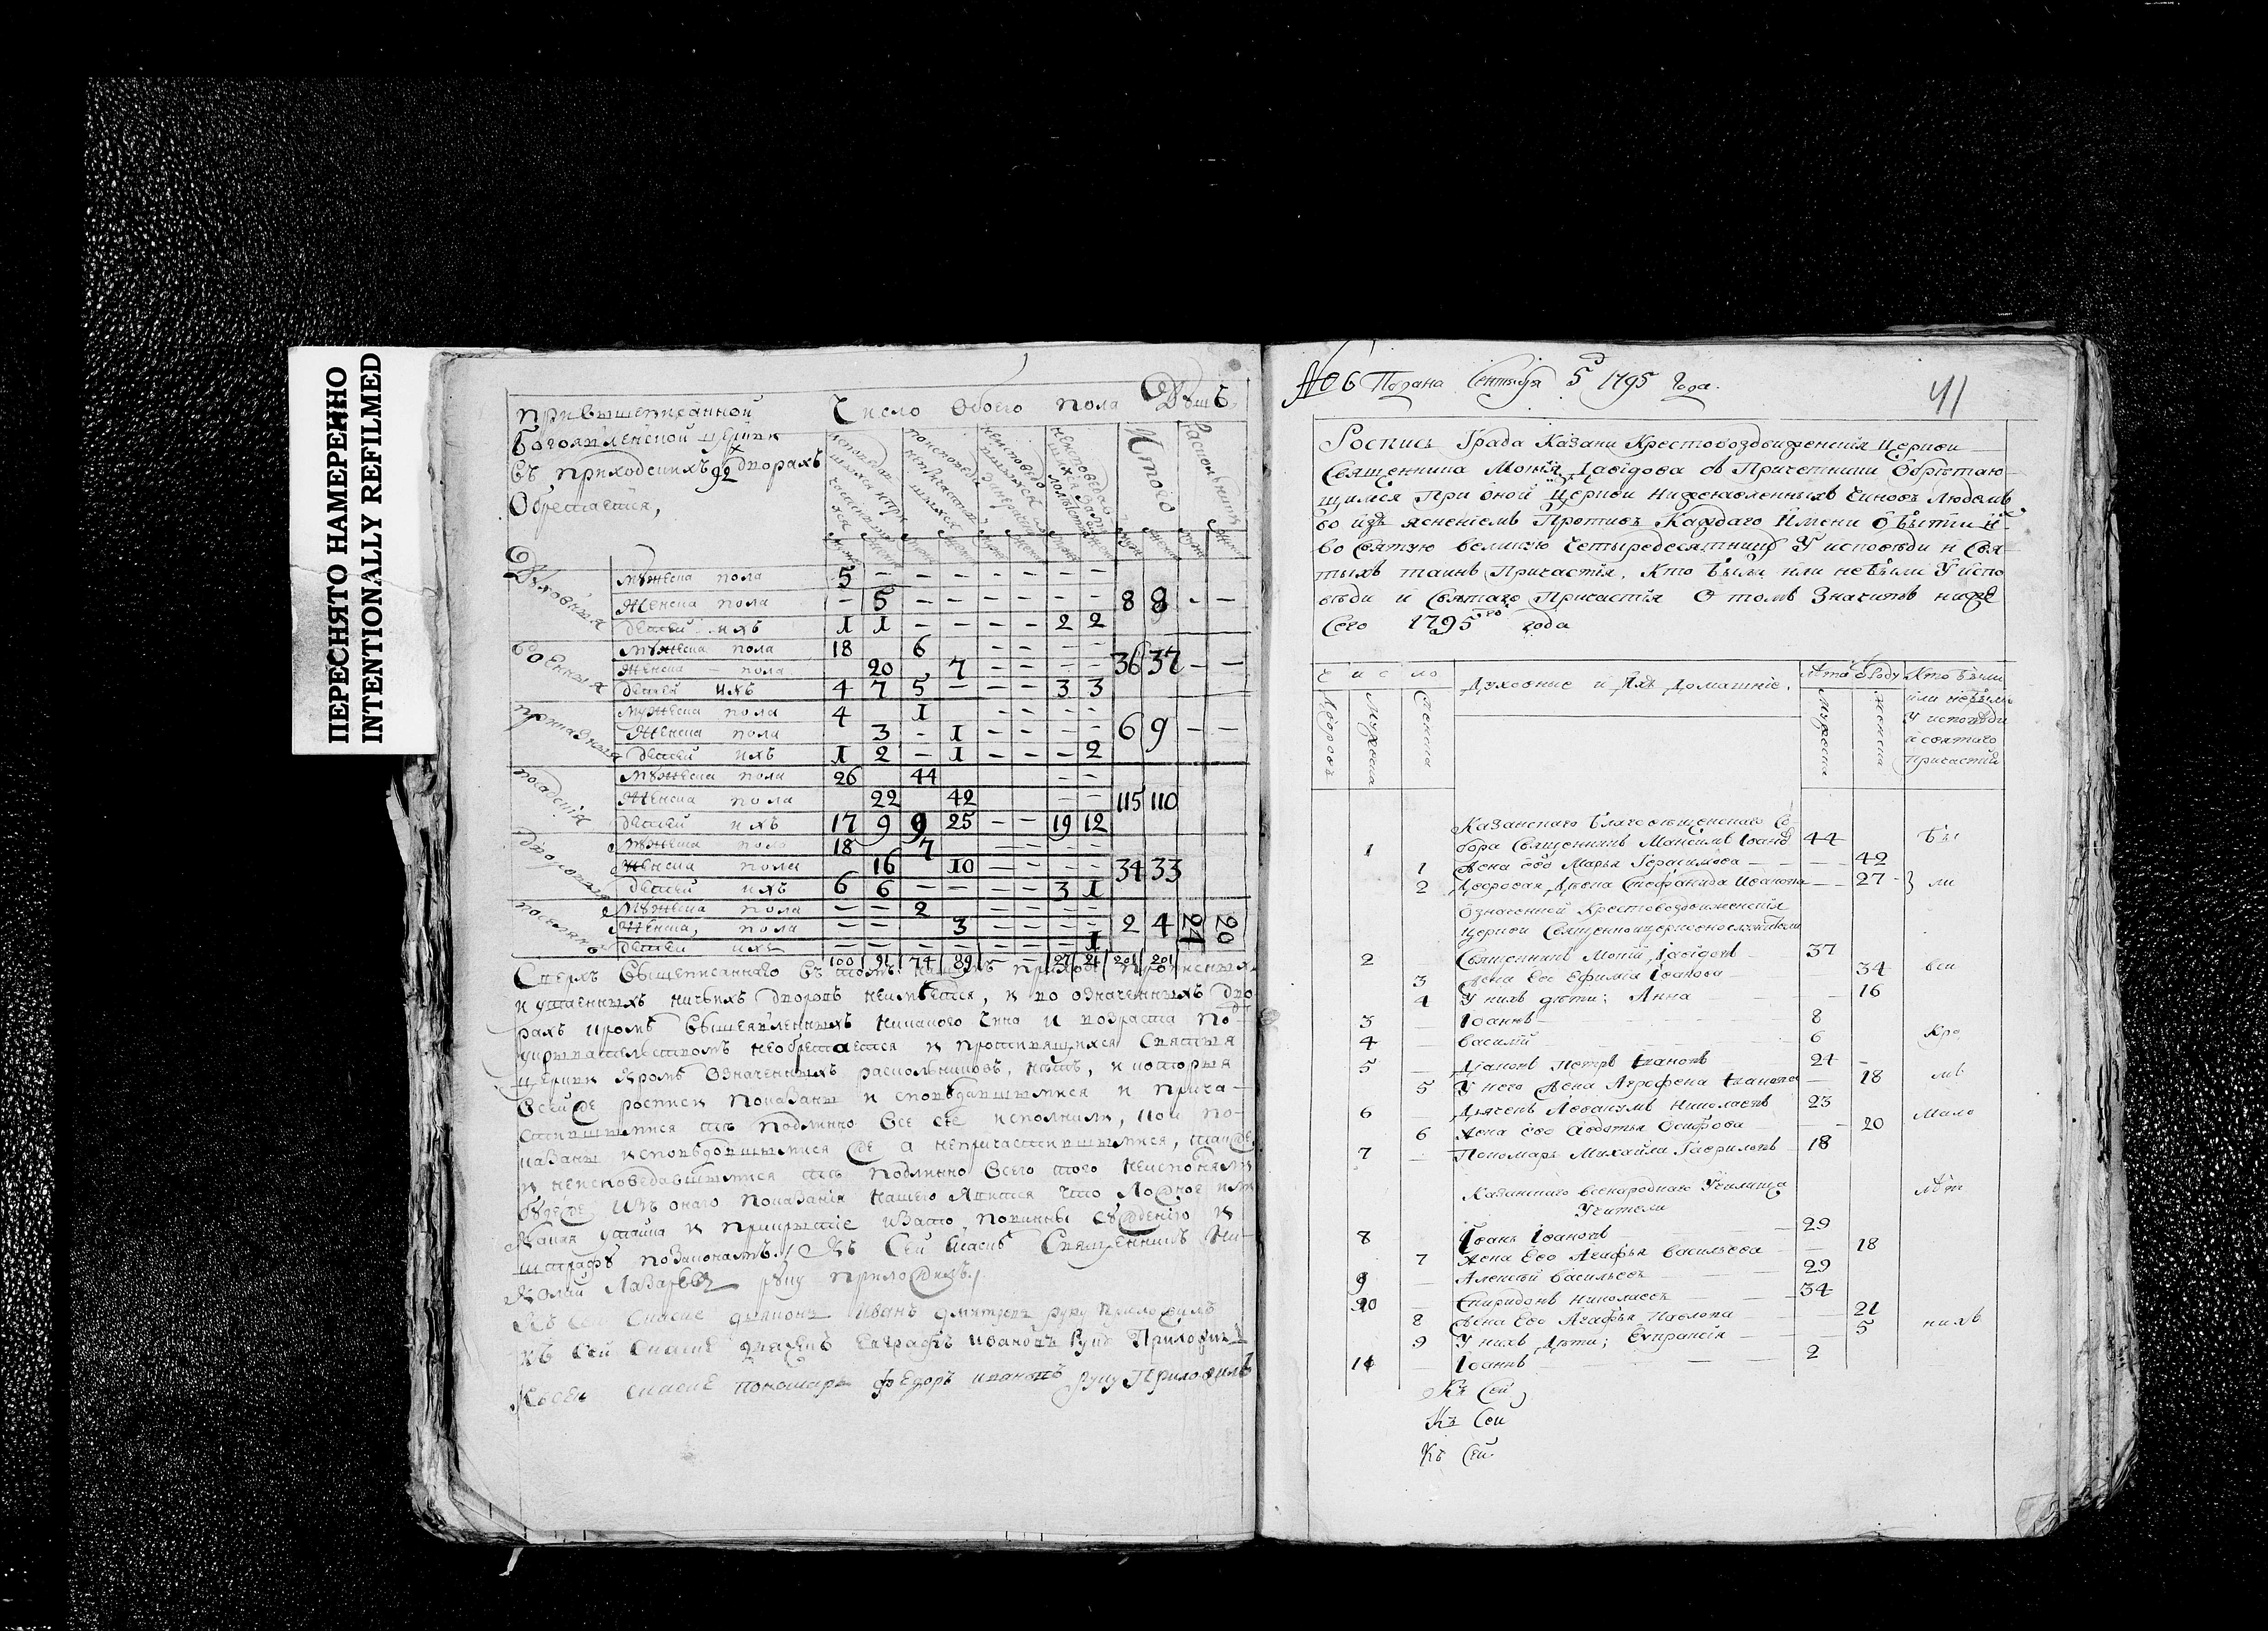 ПЕРЕСНЯТО НАМЕРЕННО
INTENTIONALLY REFILMED
При вышеписанной Число обоего пола Душъ
Богоявленской церкви
въ приходскихъ 92 дворахъ
Обретается,
Итого
Раскольники
Духовныя
мужеска пола 5 – – – – – – –
Женска пола – 5 – – – – – – 8 8 – –
детей ихъ 1 1 – – – – 2 2
военныя
мужеска пола 18 6 – – – –
Женска пола 20 7 – – – – 36 37 – –
детей ихъ 4 7 5 – – – 3 3
приказныя
мужеска пола 4 1 – – – –
Женска пола 3 – 1 – – – – 6 9 – –
детей ихъ 1 2 – 1 – – – 2
посадскія
мужеска пола 26 44 – –
Женска пола 22 42 – – 115 110
детей ихъ 17 9 9 25 – – 19 12
дворовыя
мужеска пола 18 7 – – – –
Женска пола 16 10 – – – – 34 33
детей ихъ 6 6 – – – – 3 1
поселяне
мужеска пола – – 2 – – – – –
Женска пола – – 3 – – – – 2 4 21 20
детей ихъ – – – – – – – 1
100 91 74 89 – – 27 21 201 201
Сверхъ вышеписаннаго въ томъ нашемъ приходе прописныхъ
и утаенныхъ ничьихъ дворовъ неимеется, и во означенныхъ дво
рахъ кроме вышеявленныхъ никакого чина и возраста по
укрывательствомъ необретается и противящихся святыя
церкви кроме означенныхъ раскольниковъ, нетъ, и которыя
всейже росписи показаны исповедавшымися и прича-
стившымися те подлинно все сие исполнили, кои по-
казаны исповедовшымися же а непричастившымися, такожде
и неисповедавшымися те подлинно всего того неисполняли
будеже изъ онаго показания нашего явится что ложное или
какая утайка и прикрытие и за то повинны суждению и
штрафу позаконамъ. / Къ Сей Сказке Священникъ Ни-
колай Лазаревъ руку приложилъ /
Къ сей скаске дьяконъ Иванъ Дмитревъ руку приложилъ
къ сей скаске дьячекъ Евграфъ Ивановъ руку Приложилъ
Къ сей скаске пономарь Федоръ Ивановъ руку Приложилъ
№ 6 Подана Сентября 5 д 1795 Года.
41
Роспись Града Казани Крестовоздвиженскія Церкви
Священника Моисія Давідова съ Причетники Обретаю-
щимся При оной Церкви нижеявленныхъ чиновъ людемъ
со изъ яснениемъ Противъ Каждаго Имени о бытии ихъ
во Святую великую Четыредесятницу У исповеди и Свя-
тыхъ таинъ Причастія. Кто были или небыли У испо
веди и Святаго Причастія О томъ Значитъ ниже
Сего 1795го года
Число
Духовные и Ихъ Домашніе.
Лета Отроду
Кто были
или небыли
У исповеди
и святаго
Причастия
Дворовъ
Мужеска
Женска
Мужеска
Женска
Казанскаго Благовещенскаго Со-
1 бора Священникъ Максимъ Іоано 44 бы
1 Жена ево Марья Герасимова 42
2 Дворовая Девка Стефанида Иванова 27 } ли
Означенной Крестовоздвиженския
Церкви Священноцерковнослужители
2 Священникъ Моисій Давідовъ 37
3 Жена Ево Ефимія Іванова 34 вси
4 У нихъ дети; Анна 16
3 Іоаннъ 8
4 Василій 6 Кро
5 Дьяконъ Петръ Івановъ 24
5 У него Жена Агрофена Іванова 18 ме
6 Дьячекъ Николаевъ 23
6 Жена ево Авдотья Осифова 20 Мало
7 Пономарь Михайла Гавриловъ 18
Казанскаго всенароднаго Училища лет
Учители
8 Іоанъ Іоановъ 29
7 Жена Ево Агафья Васильева 18
9 Алексей Васильевъ 29
10 Спиридонъ Николаевъ 34
8 Жена Ево Агафья Павлова 21
9 У нихъ Дети; Евпраксія 5 нихъ
11 Іоаннъ 2
Къ Сей
Къ Сей
Къ Сей